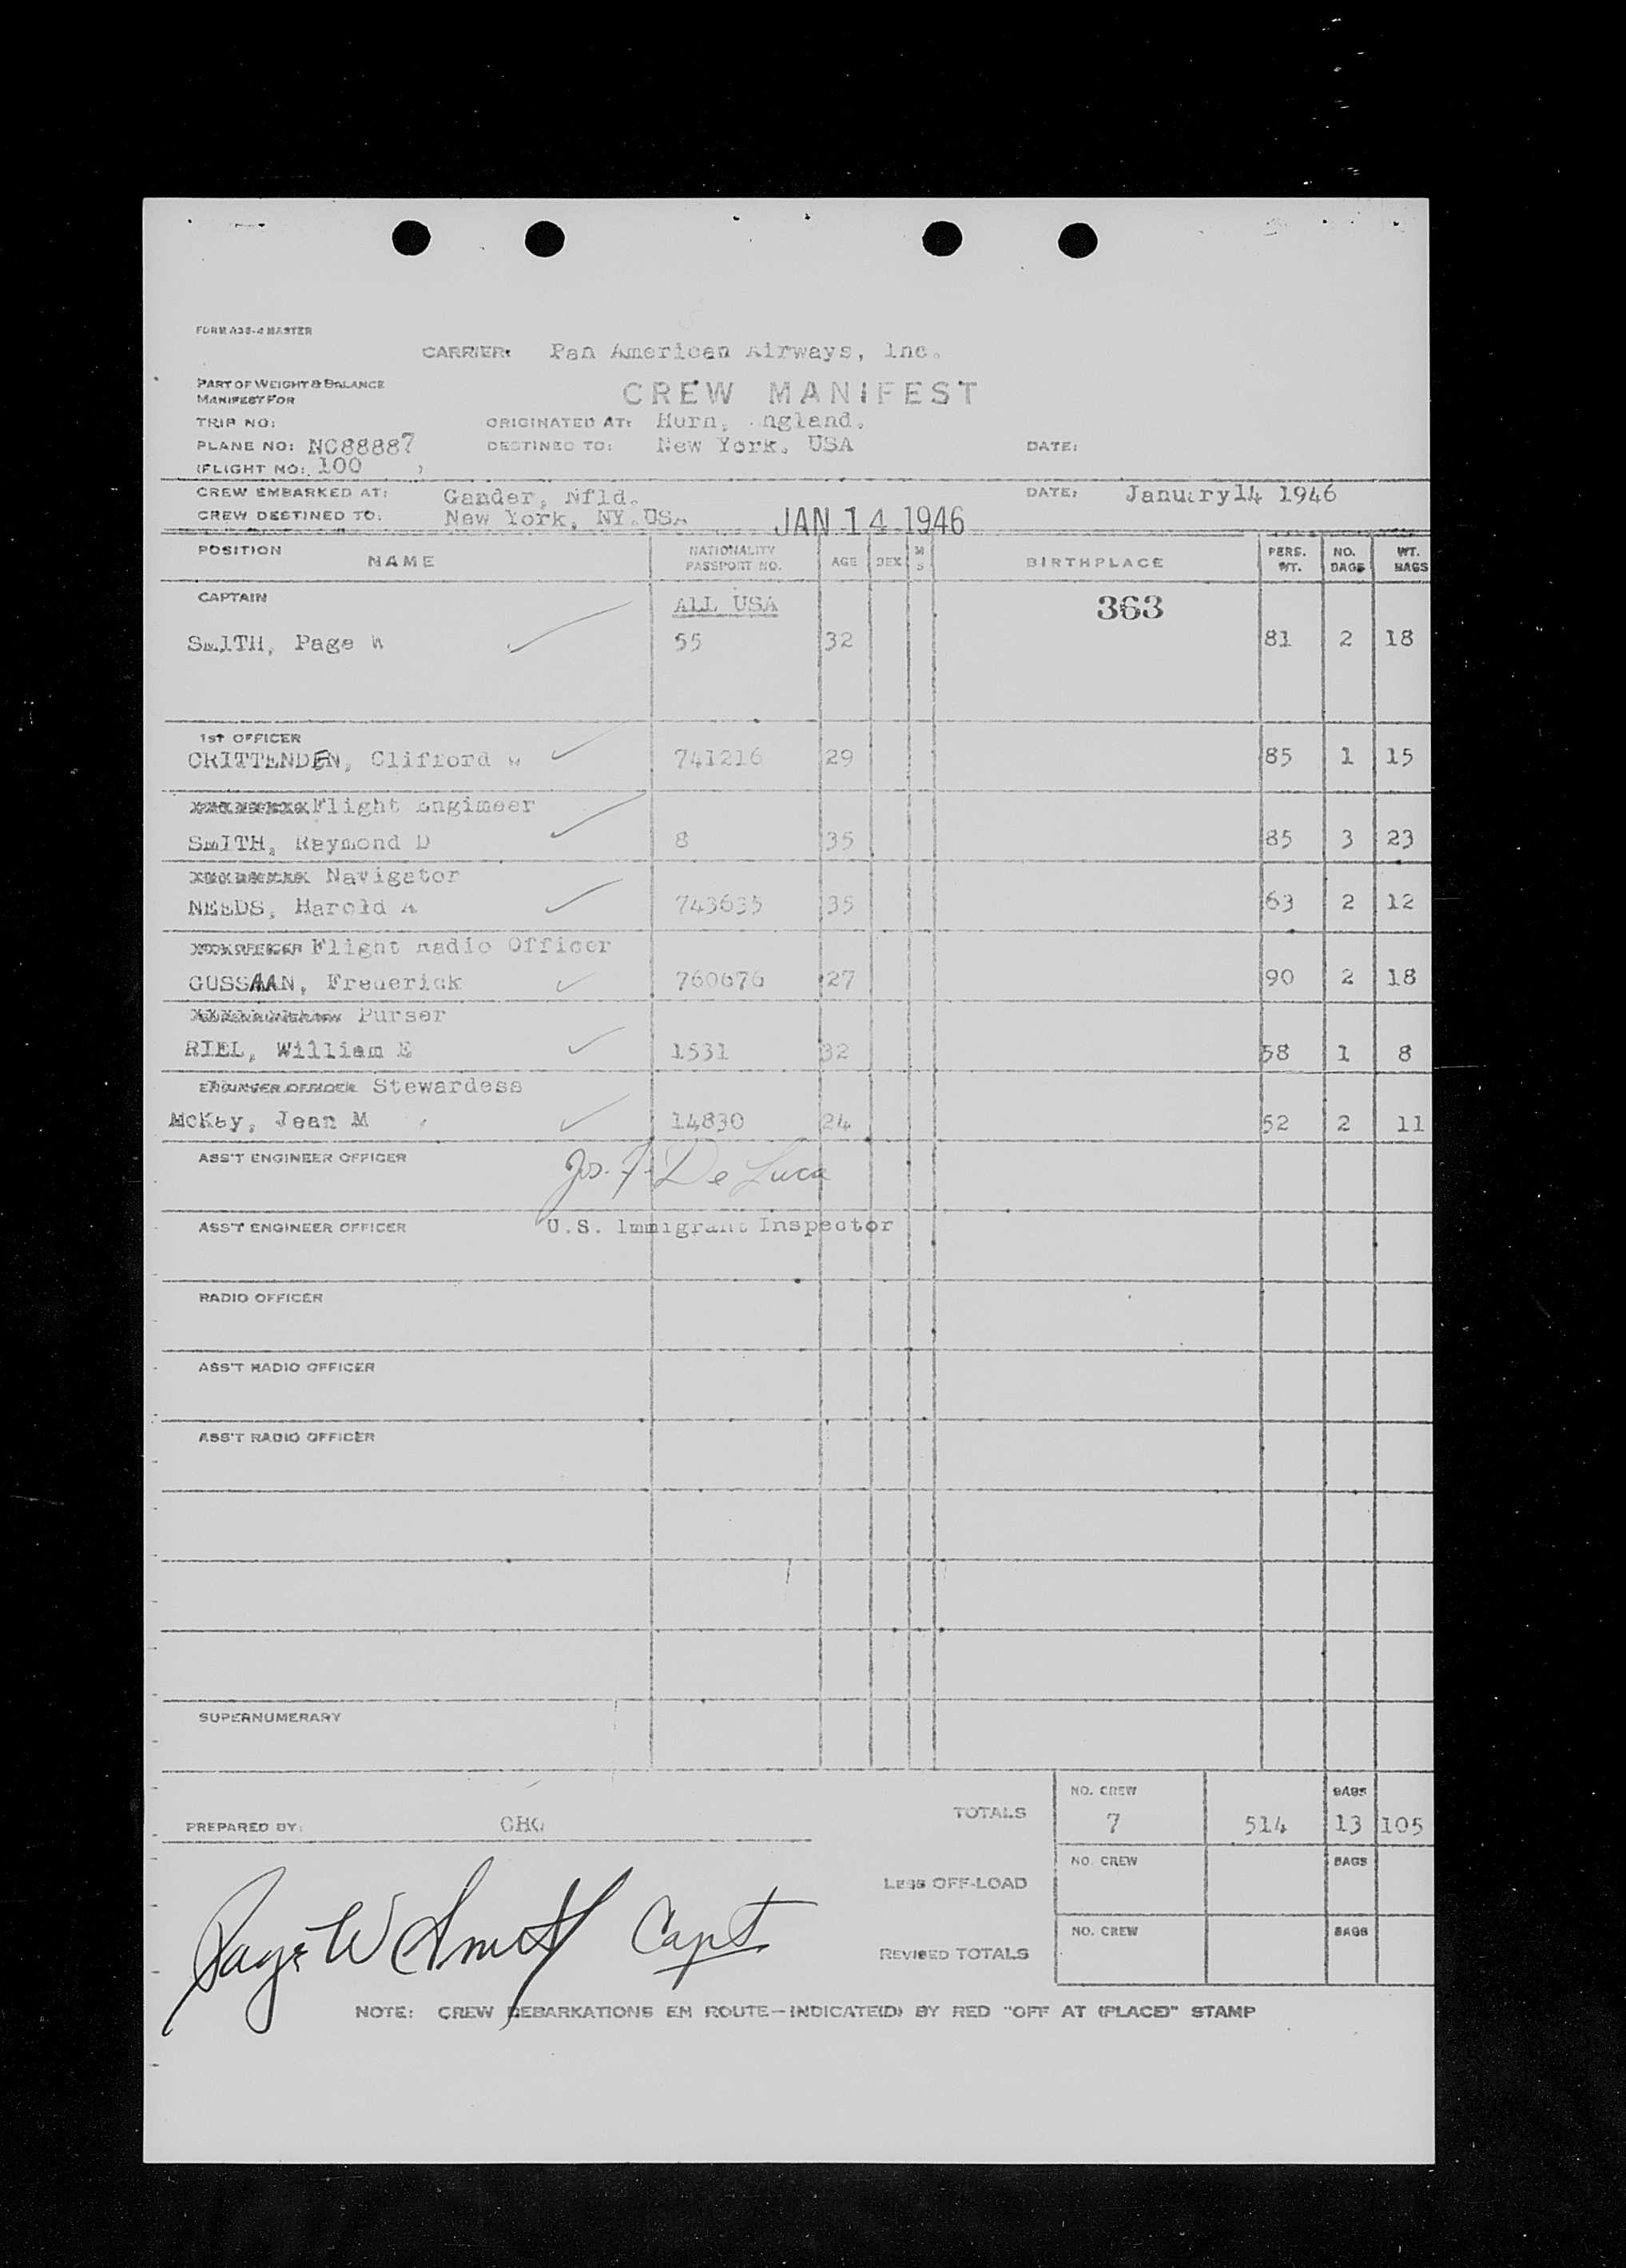 FORM A38-4 MASTER
CARRIER: Pan American Airways, Inc.
PART OF WEIGHT & BALANCE
MANIFEST FOR
CREW MANIFEST
TRIP NO: ORIGINATED AT: Hurn, ngland.
PLANE NO: NC88887 DESTINED TO: New York, USA DATE:
(FLIGHT NO: 100 )
CREW EMBARKED AT: Gander, Nfld. DATE: January 14 1946
CREW DESTINED TO: New York, NY.USA JAN 14 1946
POSITION NAME NATIONALITY PASSPORT NO. AGE SEX M S BIRTHPLACE PERS. WT. NO. BAGS WT. BAGS
CAPTAIN ALL USA 363
SMITH, Page W 55 32 81 2 18
1ST OFFICER
CRITTENDEN, Clifford W 741216 29 85 1 15
Flight Engimeer
SMITH, Raymond D 8 35 85 3 23
Navigator
NEEDS, Harold A 743635 35 63 2 12
Flight Radio Officer
GUSSMAN, Frederick 760676 27 90 2 18
Purser
RIEL, William E 1531 32 58 1 8
ENGINEER OFFICER Stewardess
McKay, Jean M 14830 24 52 2 11
ASS'T ENGINEER OFFICER Jos. F. De Luca
ASS'T ENGINEER OFFICER U.S. Immigrant Inspector
RADIO OFFICER
ASS'T RADIO OFFICER
ASS'T RADIO OFFICER
SUPERNUMERARY
NO. CREW BAGS
PREPARED BY: TOTALS 7 514 13 105
NO. CREW BAGS
LESS OFF-LOAD
Page W Smith Capt
NO. CREW BAGS
REVISED TOTALS
NOTE: CREW DEBARKATIONS EN ROUTE—INDICATE(D) BY RED "OFF AT (PLACE)" STAMP